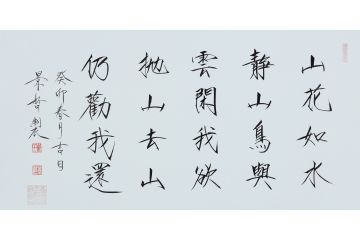 山花如水
靜山鳥與
雲閑我欲
拋山去山
仍勸我還
癸卯春月吉日
景哲製